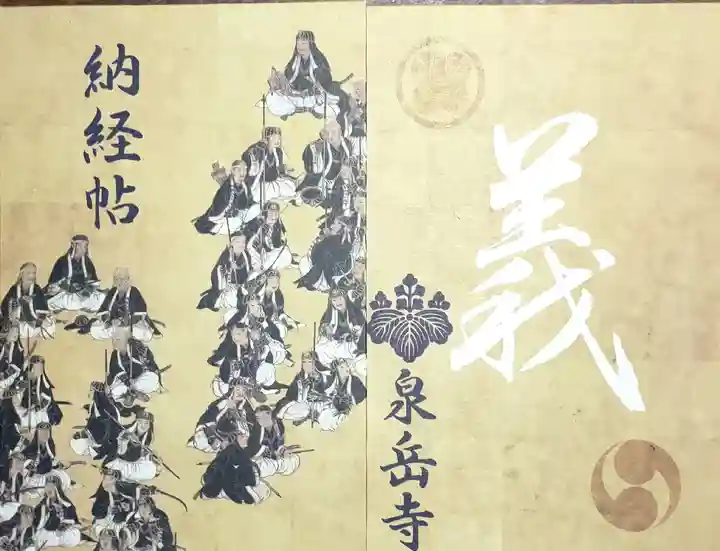 納経帖
義
泉岳寺